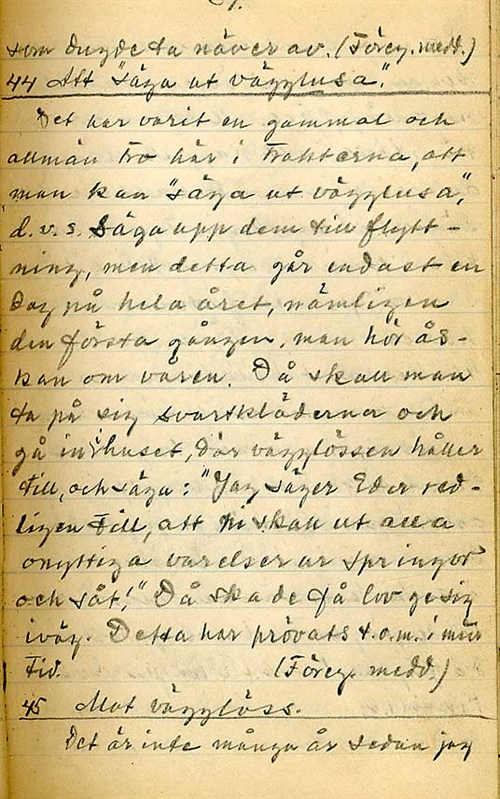 som dugde ta näver av. (Föreg. medd.)
44 Att "säga ut vägglusa".
Det har varit en gammal och
allmän tro här i trakterna, att
man kan "säga ut vägglusa",
d.v.s. säga upp dem till flytt-
ning, men detta går endast en
dag på hela året, nämligen
den första gången, man hör ås-
kan om våren. Då skall man
ta på sig svartkläderna och
gå in i huset, där vägglössen håller
till, och säga: "Jag säger Eder red-
ligen till, att Ni skall ut alla
onyttiga varelser ur springor
och såt!" Då ska de få lov ge sig
iväg. Detta har prövats t.o.m. i min
tid. (Föreg. medd.)
45 Mot vägglöss.
Det är inte många år sedan jag